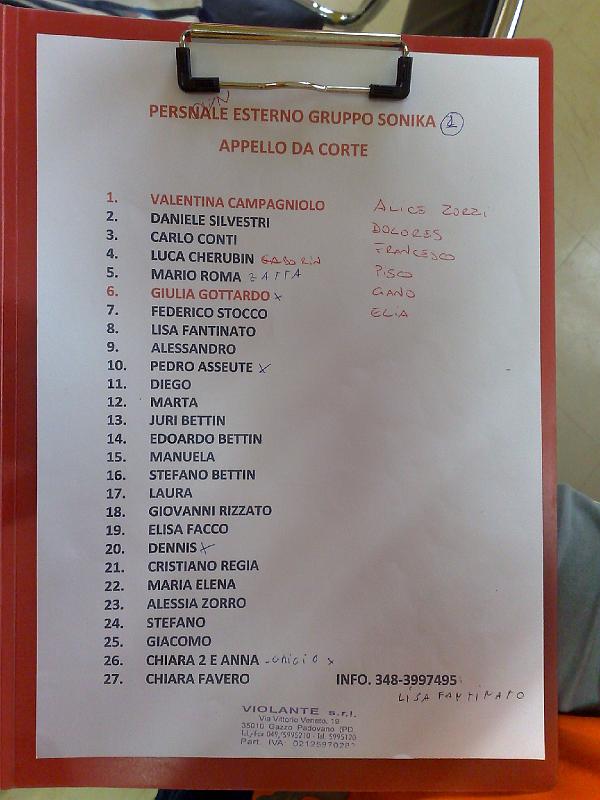 PERSNALE ESTERNO GRUPPO SONIKA 1
APPELLO DA CORTE
1. VALENTINA CAMPAGNIOLO ALICE ZORZI
2. DANIELE SILVESTRI DOLORES
3. CARLO CONTI FRANCESCO
4. LUCA CHERUBIN GABORIN PISCO
5. MARIO ROMA ZATTA
6. GIULIA GOTTARDO x GANO
7. FEDERICO STOCCO ELIA
8. LISA FANTINATO
9. ALESSANDRO
10. PEDRO ASSEUTE x
11. DIEGO
12. MARTA
13. JURI BETTIN
14. EDOARDO BETTIN
15. MANUELA
16. STEFANO BETTIN
17. LAURA
18. GIOVANNI RIZZATO
19. ELISA FACCO
20. DENNIS x
21. CRISTIANO REGIA
22. MARIA ELENA
23. ALESSIA ZORRO
24. STEFANO
25. GIACOMO
26. CHIARA 2 E ANNA x
27. CHIARA FAVERO INFO. 348-3997495
LISA FANTINATO
VIOLANTE s.r.l.
Via Vittorio Veneto, 19
35010 Gazzo Padovano (PD
Tel./Fax 049/5995210 - Tel. 5995120
Part. IVA: 02125970282